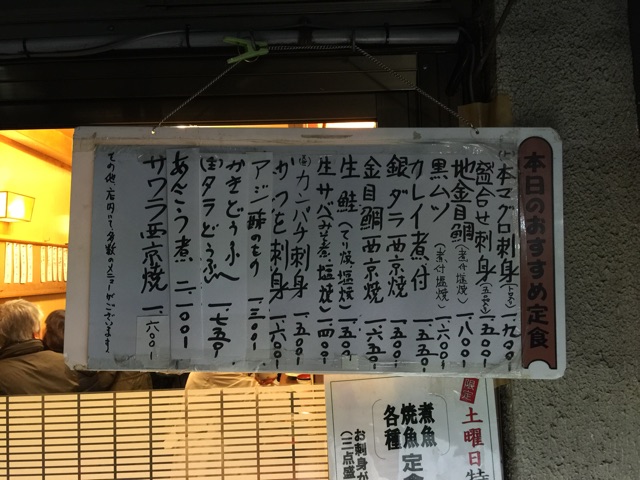 本日のおすすめ定食
本マグロ刺身 一.九〇〇
盛合せ刺身 一.五〇〇
地金目鯛(煮付 塩焼) 一.八〇〇
黒ムツ(煮付 塩焼) 一.六〇〇
カレイ煮付 一.五五〇
銀ダラ西京焼 一.五〇〇
金目鯛西京焼 一.六五〇
生鮭(てり焼 塩焼) 一.五〇〇
生サバ(みそ煮 塩焼) 一.四〇〇
カンパチ刺身 一.五〇〇
かつを刺身 一.六〇〇
アジ酢のもの 一.三〇〇
かきどうふ
タラどうふ 一.七五〇
あんこう煮 二.一〇〇
サワラ西京焼 一.六〇〇
その他店内にて多数のメニューがございます
限定
土曜日特
煮魚
焼魚 定食
各種
お刺身が
(三点盛